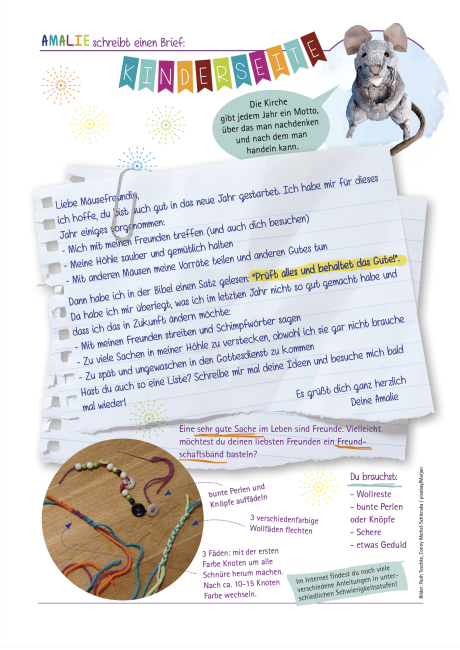 AMALIE schreibt einen Brief:
KINDERSEITE
Die Kirche
gibt jedem Jahr ein Motto,
über das man nachdenken
und nach dem man
handeln kann.
Liebe Mäusefreundin,
ich hoffe, du bist auch gut in das neue Jahr gestartet. Ich habe mir für dieses
Jahr einiges vorgenommen:
- Mich mit meinen Freunden treffen (und auch dich besuchen)
- Meine Höhle sauber und gemütlich halten
- Mit anderen Mäusen meine Vorräte teilen und anderen Gutes tun
Dann habe ich in der Bibel einen Satz gelesen: "Prüft alles und behaltet das Gute!".
Da habe ich mir überlegt, was ich im letzten Jahr nicht so gut gemacht habe und
dass ich das in Zukunft ändern möchte:
- Mit meinen Freunden streiten und Schimpfwörter sagen
- Zu viele Sachen in meiner Höhle zu verstecken, obwohl ich sie gar nicht brauche
- Zu spät und ungewaschen in den Gottesdienst zu kommen
Hast du auch so eine Liste? Schreibe mir mal deine Ideen und besuche mich bald
mal wieder!
Es grüßt dich ganz herzlich
Deine Amalie
Eine sehr gute Sache im Leben sind Freunde. Vielleicht
möchtest du deinen liebsten Freunden ein Freund-
schaftsband basteln?
bunte Perlen und
Knöpfe auffädeln
3 verschiedenfarbige
Wollfäden flechten
3 Fäden: mit der ersten
Farbe Knoten um alle
Schnüre herum machen.
Nach ca. 10-15 Knoten
Farbe wechseln.
Du brauchst:
- Wollreste
- bunte Perlen
oder Knöpfe
- Schere
- etwas Geduld
Im Internet findest du noch viele
verschiedene Anleitungen in unter-
schiedlichen Schwierigkeitsstufen!